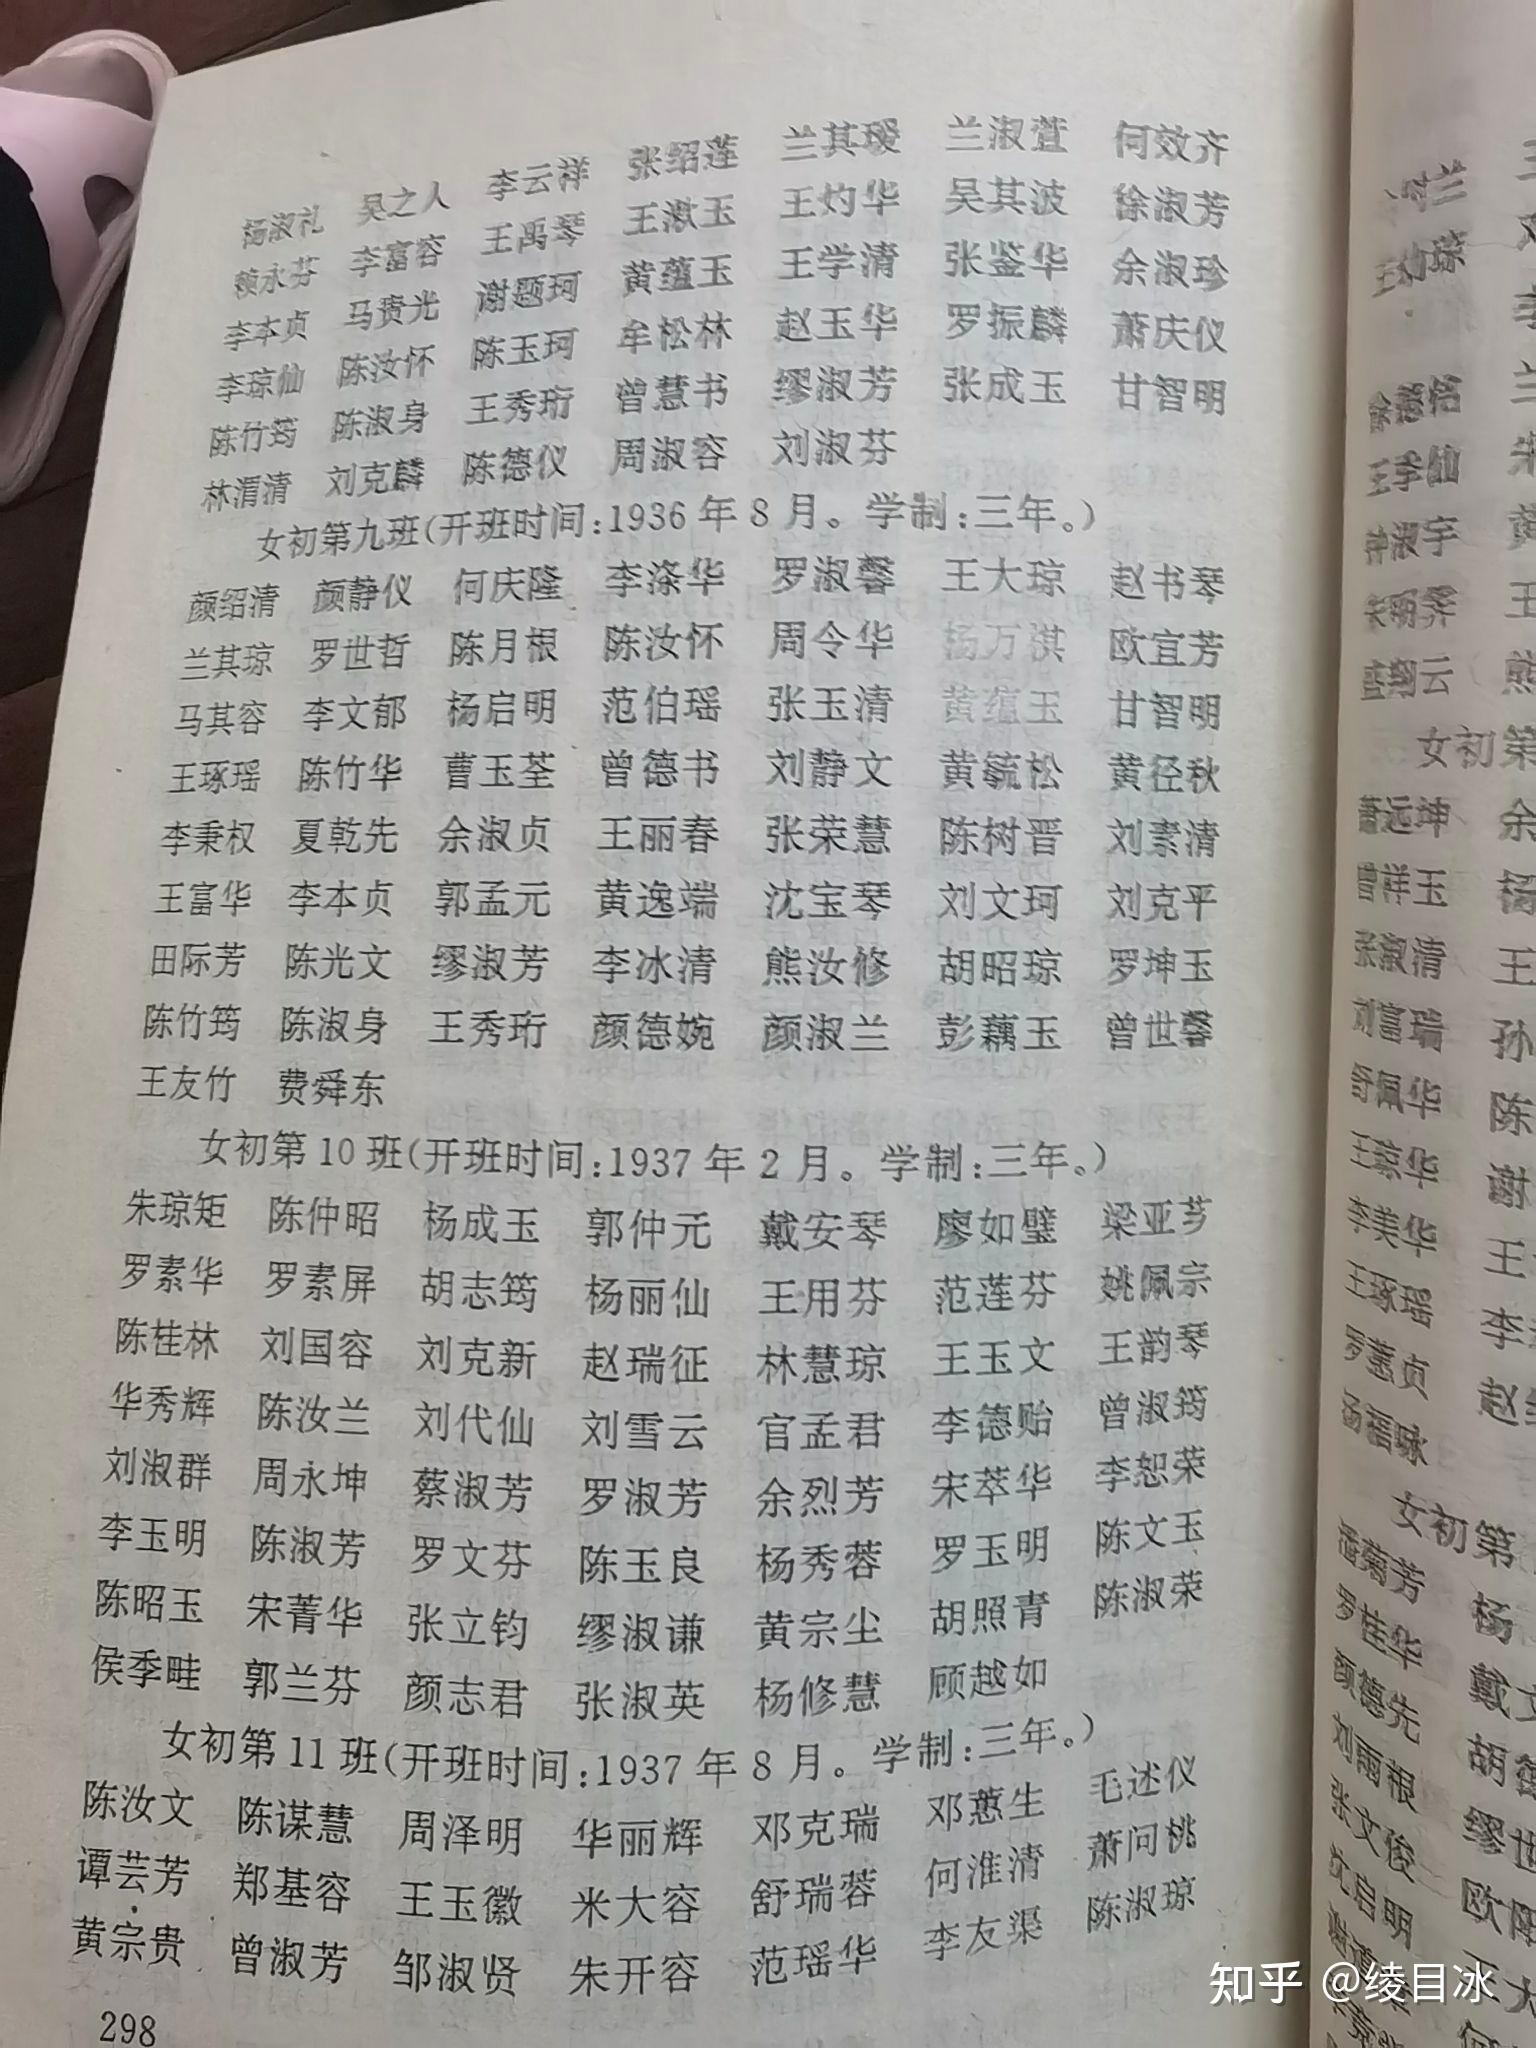 杨淑礼 吴之人 李云祥 张绍莲 兰其瑷 兰淑萱 何效齐
赖永芬 李富容 王禹琴 王漱玉 王灼华 吴其波 徐淑芳
李本贞 马贵光 谢题珂 黄蕴玉 王学清 张鉴华 余淑珍
李琼仙 陈汝怀 陈玉珂 牟松林 赵玉华 罗振麟 萧庆仪
陈竹筠 陈淑身 王秀珩 曾慧书 缪淑芳 张成玉 甘智明
林渭清 刘克麟 陈德仪 周淑容 刘淑芬
女初第九班(开班时间:1936年8月。学制:三年。)
颜绍清 颜静仪 何庆隆 李涤华 罗淑馨 王大琼 赵书琴
兰其琼 罗世哲 陈月根 陈汝怀 周令华 杨万淇 欧宜芳
马其容 李文郁 杨启明 范伯瑶 张玉清 黄蕴玉 甘智明
王琢瑶 陈竹华 曹玉荃 曾德书 刘静文 黄毓松 黄径秋
李秉权 夏乾先 余淑贞 王丽春 张荣慧 陈树晋 刘素清
王富华 李本贞 郭孟元 黄逸端 沈宝琴 刘文珂 刘克平
田际芳 陈光文 缪淑芳 李冰清 熊汝修 胡昭琼 罗坤玉
陈竹筠 陈淑身 王秀珩 颜德婉 颜淑兰 彭藕玉 曾世馨
王友竹 费舜东
女初第10班(开班时间:1937年2月。学制:三年。)
朱琼矩 陈仲昭 杨成玉 郭仲元 戴安琴 廖如璧 梁亚芗
罗素华 罗素屏 胡志筠 杨丽仙 王用芬 范莲芬 姚佩宗
陈桂林 刘国容 刘克新 赵瑞征 林慧琼 王玉文 王韵琴
华秀辉 陈汝兰 刘代仙 刘雪云 官孟君 李德贻 曾淑筠
刘淑群 周永坤 蔡淑芳 罗淑芳 余烈芳 宋萃华 李恕荣
李玉明 陈淑芳 罗文芬 陈玉良 杨秀蓉 罗玉明 陈文玉
陈昭玉 宋菁华 张立钧 缪淑谦 黄宗尘 胡照青 陈淑荣
侯季畦 郭兰芬 颜志君 张淑英 杨修慧 顾越如
女初第11班(开班时间:1937年8月。学制:三年。)
陈汝文 陈谋慧 周泽明 华丽辉 邓克瑞 邓蕙生 毛述仪
谭芸芳 郑基容 王玉徽 米大容 舒瑞蓉 何淮清 萧问桃
黄宗贵 曾淑芳 邹淑贤 朱开容 范瑶华 李友渠 陈淑琼
298
王季仙
钟淑宇
女初第
萧远坤 余
曾祥玉 杨
张淑清 王
刘富瑞 孙
陈
王琼华 谢
李美华 王
王琢瑶 李
罗蕙贞 赵
女初第
杨
罗桂华 戴
颜德先 胡
刘雨根 缪世
张文俊 欧阳
阮启明 王大
知乎 @绫目冰